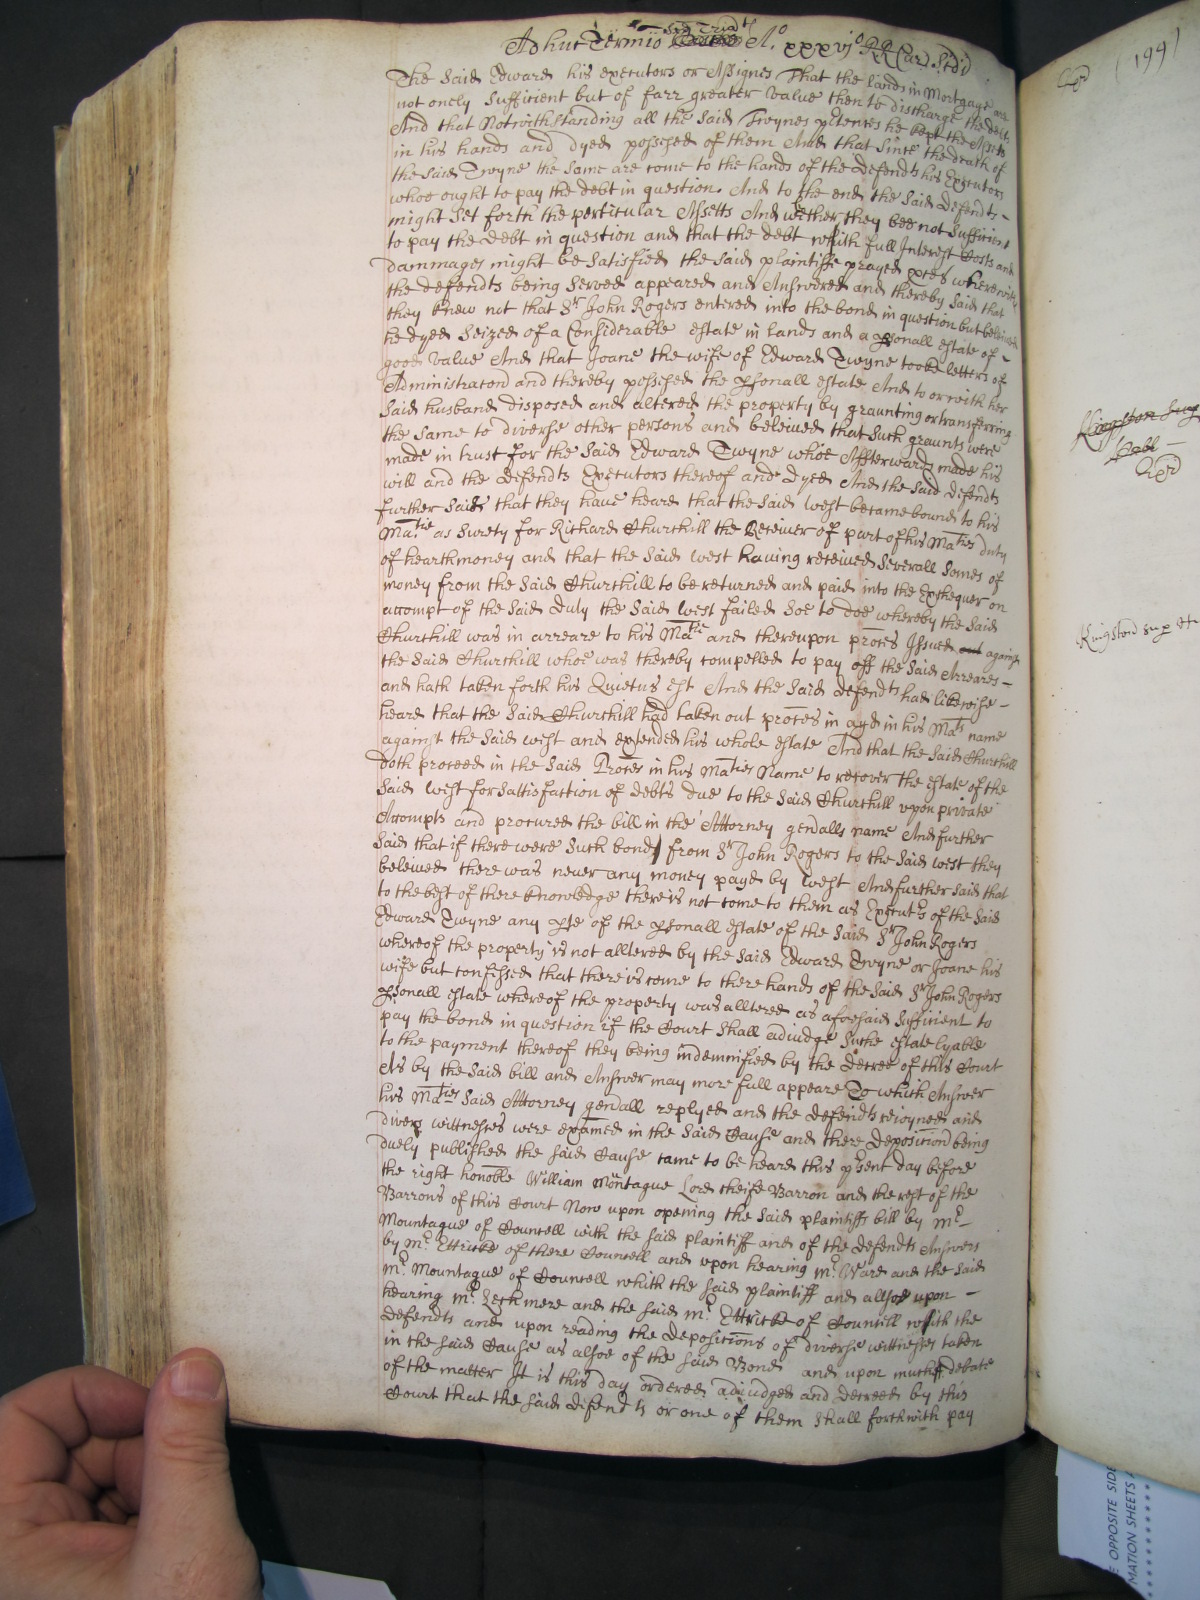 Adhuc Termio Sce Trid A.o xxxvjo RR Car Scdi
The said Edward his executors or Assignes That the lands in Mortgage are
not onely sufficient but of farr greater value then to discharge the debts
And that Notwithstanding all the said Twynes p'tences he kept the Assetts
in his hands and dyed possessed of them And that since the death of
the said Twyne the same are come to the hands of the defend.ts his Executors
whoe ought to pay the debt in question. And to the end the said defend.ts -
might set forth the perticular Assetts And wether they bee not sufficient
to pay the debt in question and that the debt which full Interest Costs and
dammages might be satisfied the said plaintiffe prayed p'ces wherewith
the defend.ts being served appeared and Answered and thereby said that
they knew not that S.r John Rogers entered into the bond in question but beleived
he dyed seized of a Considerable estate in lands and a p'sonall estate of -
good value And that Joane the wife of Edward Twyne tooke letters of
Administracon and thereby possessed the p'sonall estate And to or with her
said husband disposed and altered the property by graunting or transferring
the same to diverse other persons and beleived that such graunts were
made in trust for the said Edward Twyne whoe Affterwards made his
will and the defend.ts Executors thereof and dyed And the said defend.ts
further said that they have heard that the said West became bound to his
Ma.tie as surety for Richard Churchill the Receiver of part of his Ma.ties duty
of hearthmoney and that the said West having received severall somes of
money from the said Churchill to be returned and paid into the Exchequer on
accompt of the said duty the said West failed soe to doe whereby the said
Churchill was in arreare to his Ma.tie and thereupon proces Issued out against
the said Churchill whoe was thereby compelled to pay off the said Arreares -
and hath taken forth his Quietus est And the said defend.ts had likewise -
heard that the said Churchill had taken out proces in ayd in his Ma.ts name
against the said West and extended his whole estate And that the said Churchill
doth proceed in the said Proces in his Ma.ties Name to recover the estate of the
said West for sattisfaction of debts due to the said Churchill upon private
Accompts and procured the bill in the Attorney gen'alls name And further
said that if there were such bond from S.r John Rogers to the said West they
beleived there was never any money payd by West And further said that
to the best of there knowledge there is not come to them as Execut.rs of the said
Edward Twyne any p'te of the p'sonall estate of the said S.r John Rogers
whereof the property is not alltered by the said Edward Twyne or Joane his
wife but confessed that there is come to there hands of the said S.r John Rogers
p'sonall estate whereof the property was alltered as aforesaid sufficient to
pay the bond in question if the Court shall adiudge suche estate lyable
to the payment thereof they being indemnified by the decree of this Court
As by the said bill and Answer may more full appeare To which Answer
his Ma.ties said Attorney gen'all replyed and the defend.ts reioyned and
divers wittnesses were exam'ed in the said Cause and there Deposition being
duely published the said Cause came to be heard this p'sent day before
the right hono'ble William Montague Lord cheife Barron and the rest of the
Barrons of this Court Now upon opening the said plaintiffs bill by M.r -
Mountague of Councell with the said plaintiff and of the defend.ts Answers
by M.r Ettricke of there Councell and upon hearing M.r Ward and the said
M.r Mountague of Councell which the said plaintiff and allsoe upon -
hearing M.r Lechmere and the said M.r Ettricke of Councell with the
defend.ts and upon reading the depositions of diverse wittnesses taken
in the said Cause as alsoe of the said Bond and upon much debate
of the matter It is this day ordered adiudged and decreed by this
Court that the said defend.ts or one of them shall forthwith pay
(199)
Kingston sup
Kingston sup